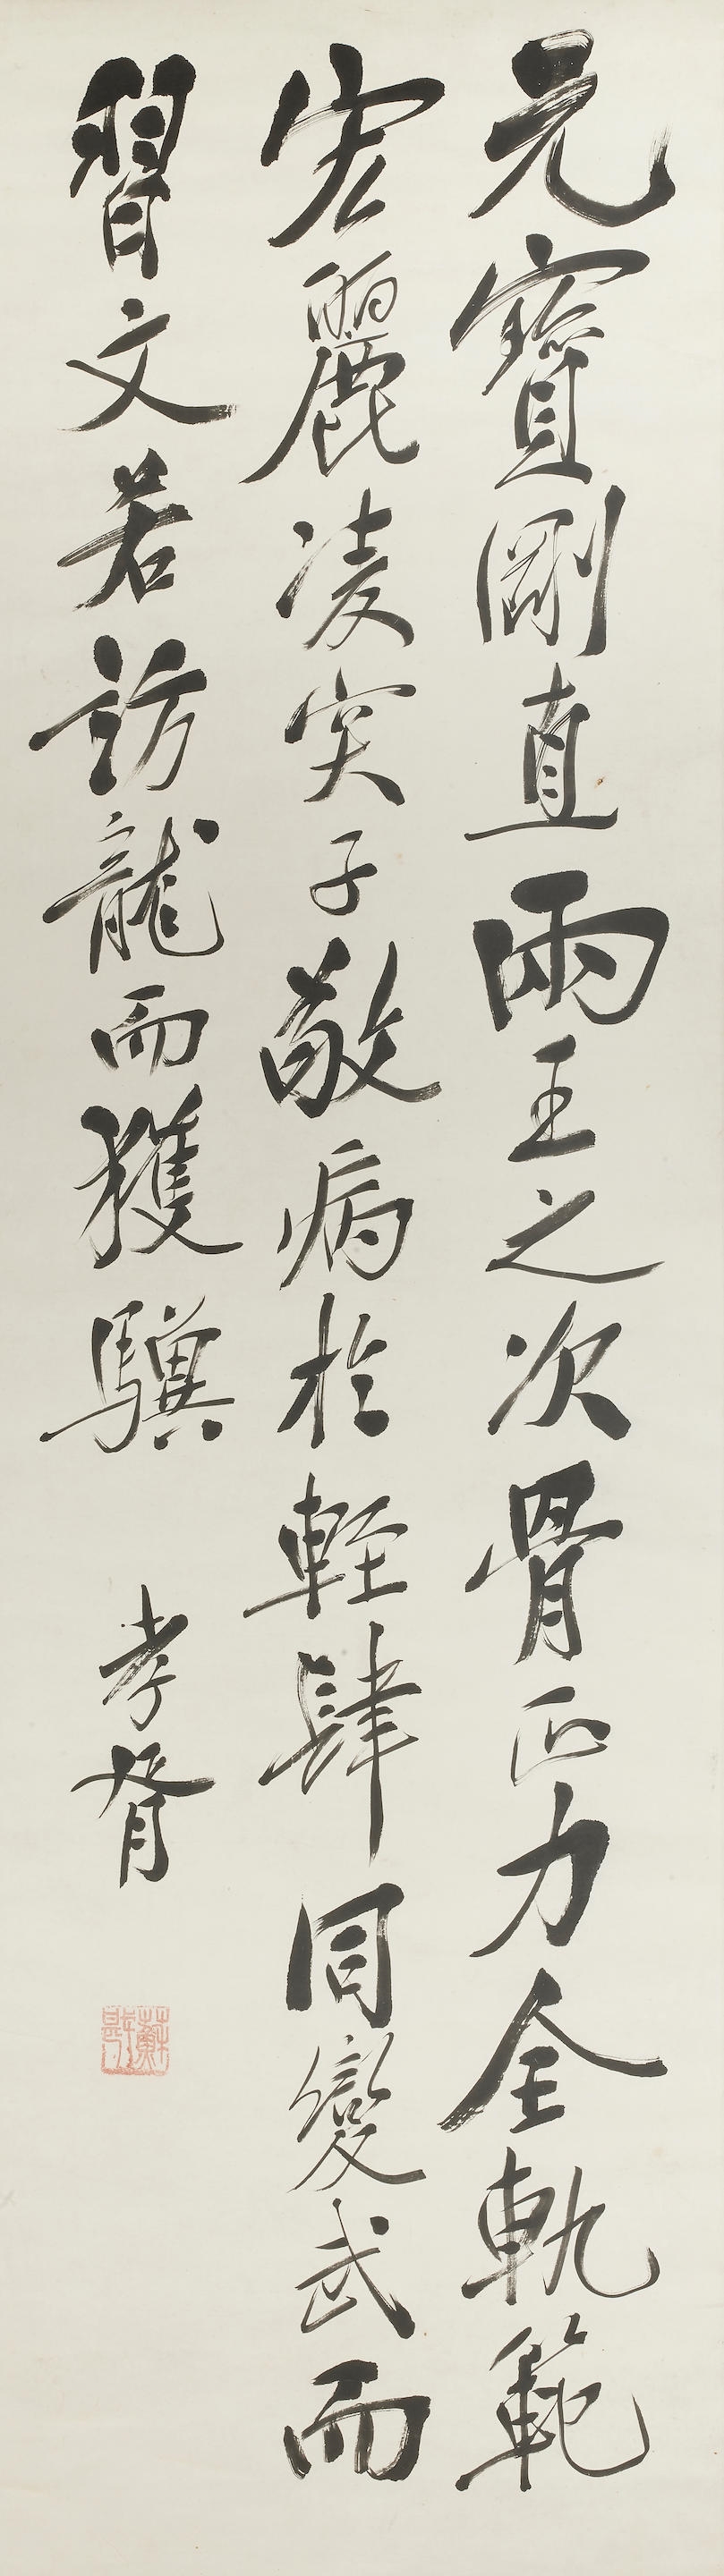 元寶剛直兩王之次骨正力全軌範
宏麗凌突子敬病於輕肆同變武而
習文若訪龍而獲驥
孝胥
蘇戡